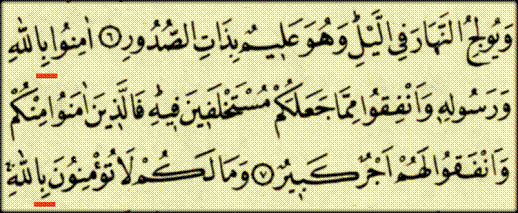 وَيُولِجُ النَّهَارَ فِي الَّيْلِ وَهُوَ عَلِيمٌ بِذَاتِ الصُّدُورِ ٦ اٰمِنُوا بِاللهِ
وَرَسُولِهِ وَاَنْفِقُوا مِمَّا جَعَلَكُمْ مُسْتَخْلَفِينَ فِيهِ فَالَّذِينَ اٰمَنُوا مِنْكُمْ
وَاَنْفَقُوا لَهُمْ اَجْرٌ كَبِيرٌ ٧ وَمَا لَكُمْ لَا تُؤْمِنُونَ بِاللهِ